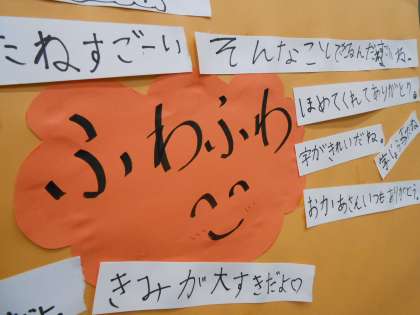 たねすごーい
そんなこしできるんだ凄いね。
ほめてくれてありがとう。
ふわふわ
字がきれいだね。
おかあさんいつもありがとう。
きみが大すきだよ♡